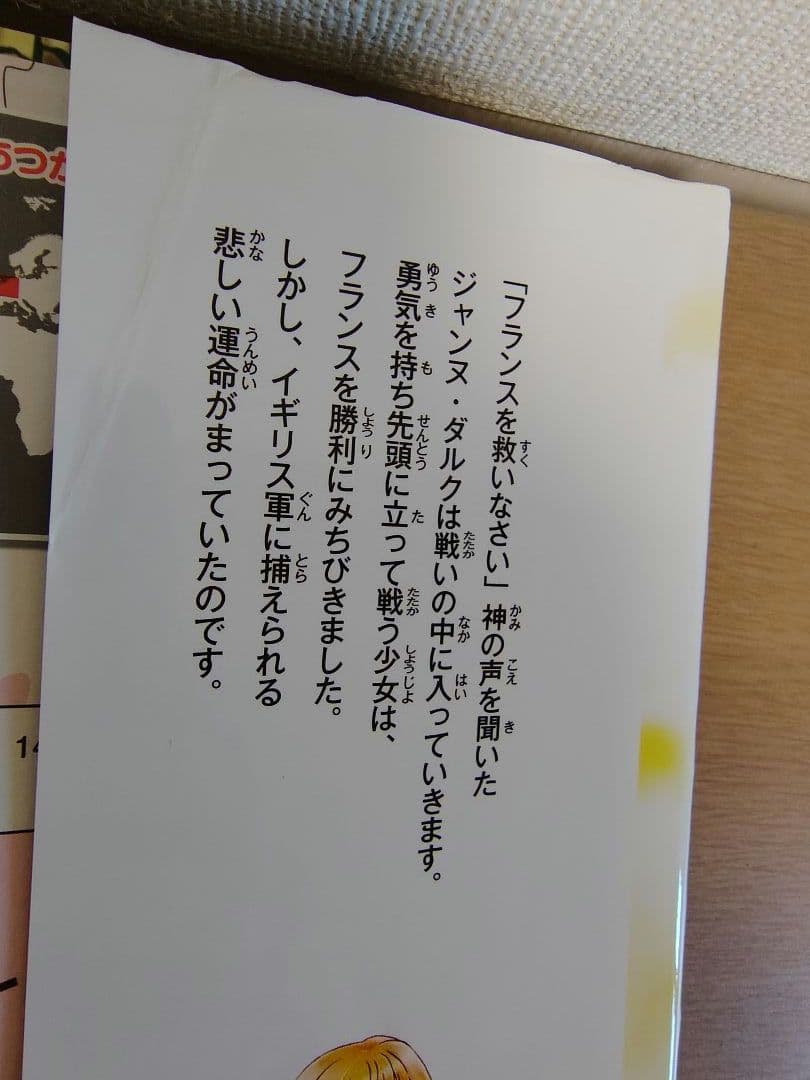 「フランスを救いなさい」神の声を聞いた
ジャンヌ・ダルクは戦いの中に入っていきます。
勇気を持ち先頭に立って戦う少女は、
フランスを勝利にみちびきました。
しかし、イギリス軍に捕えられる
悲しい運命がまっていたのです。